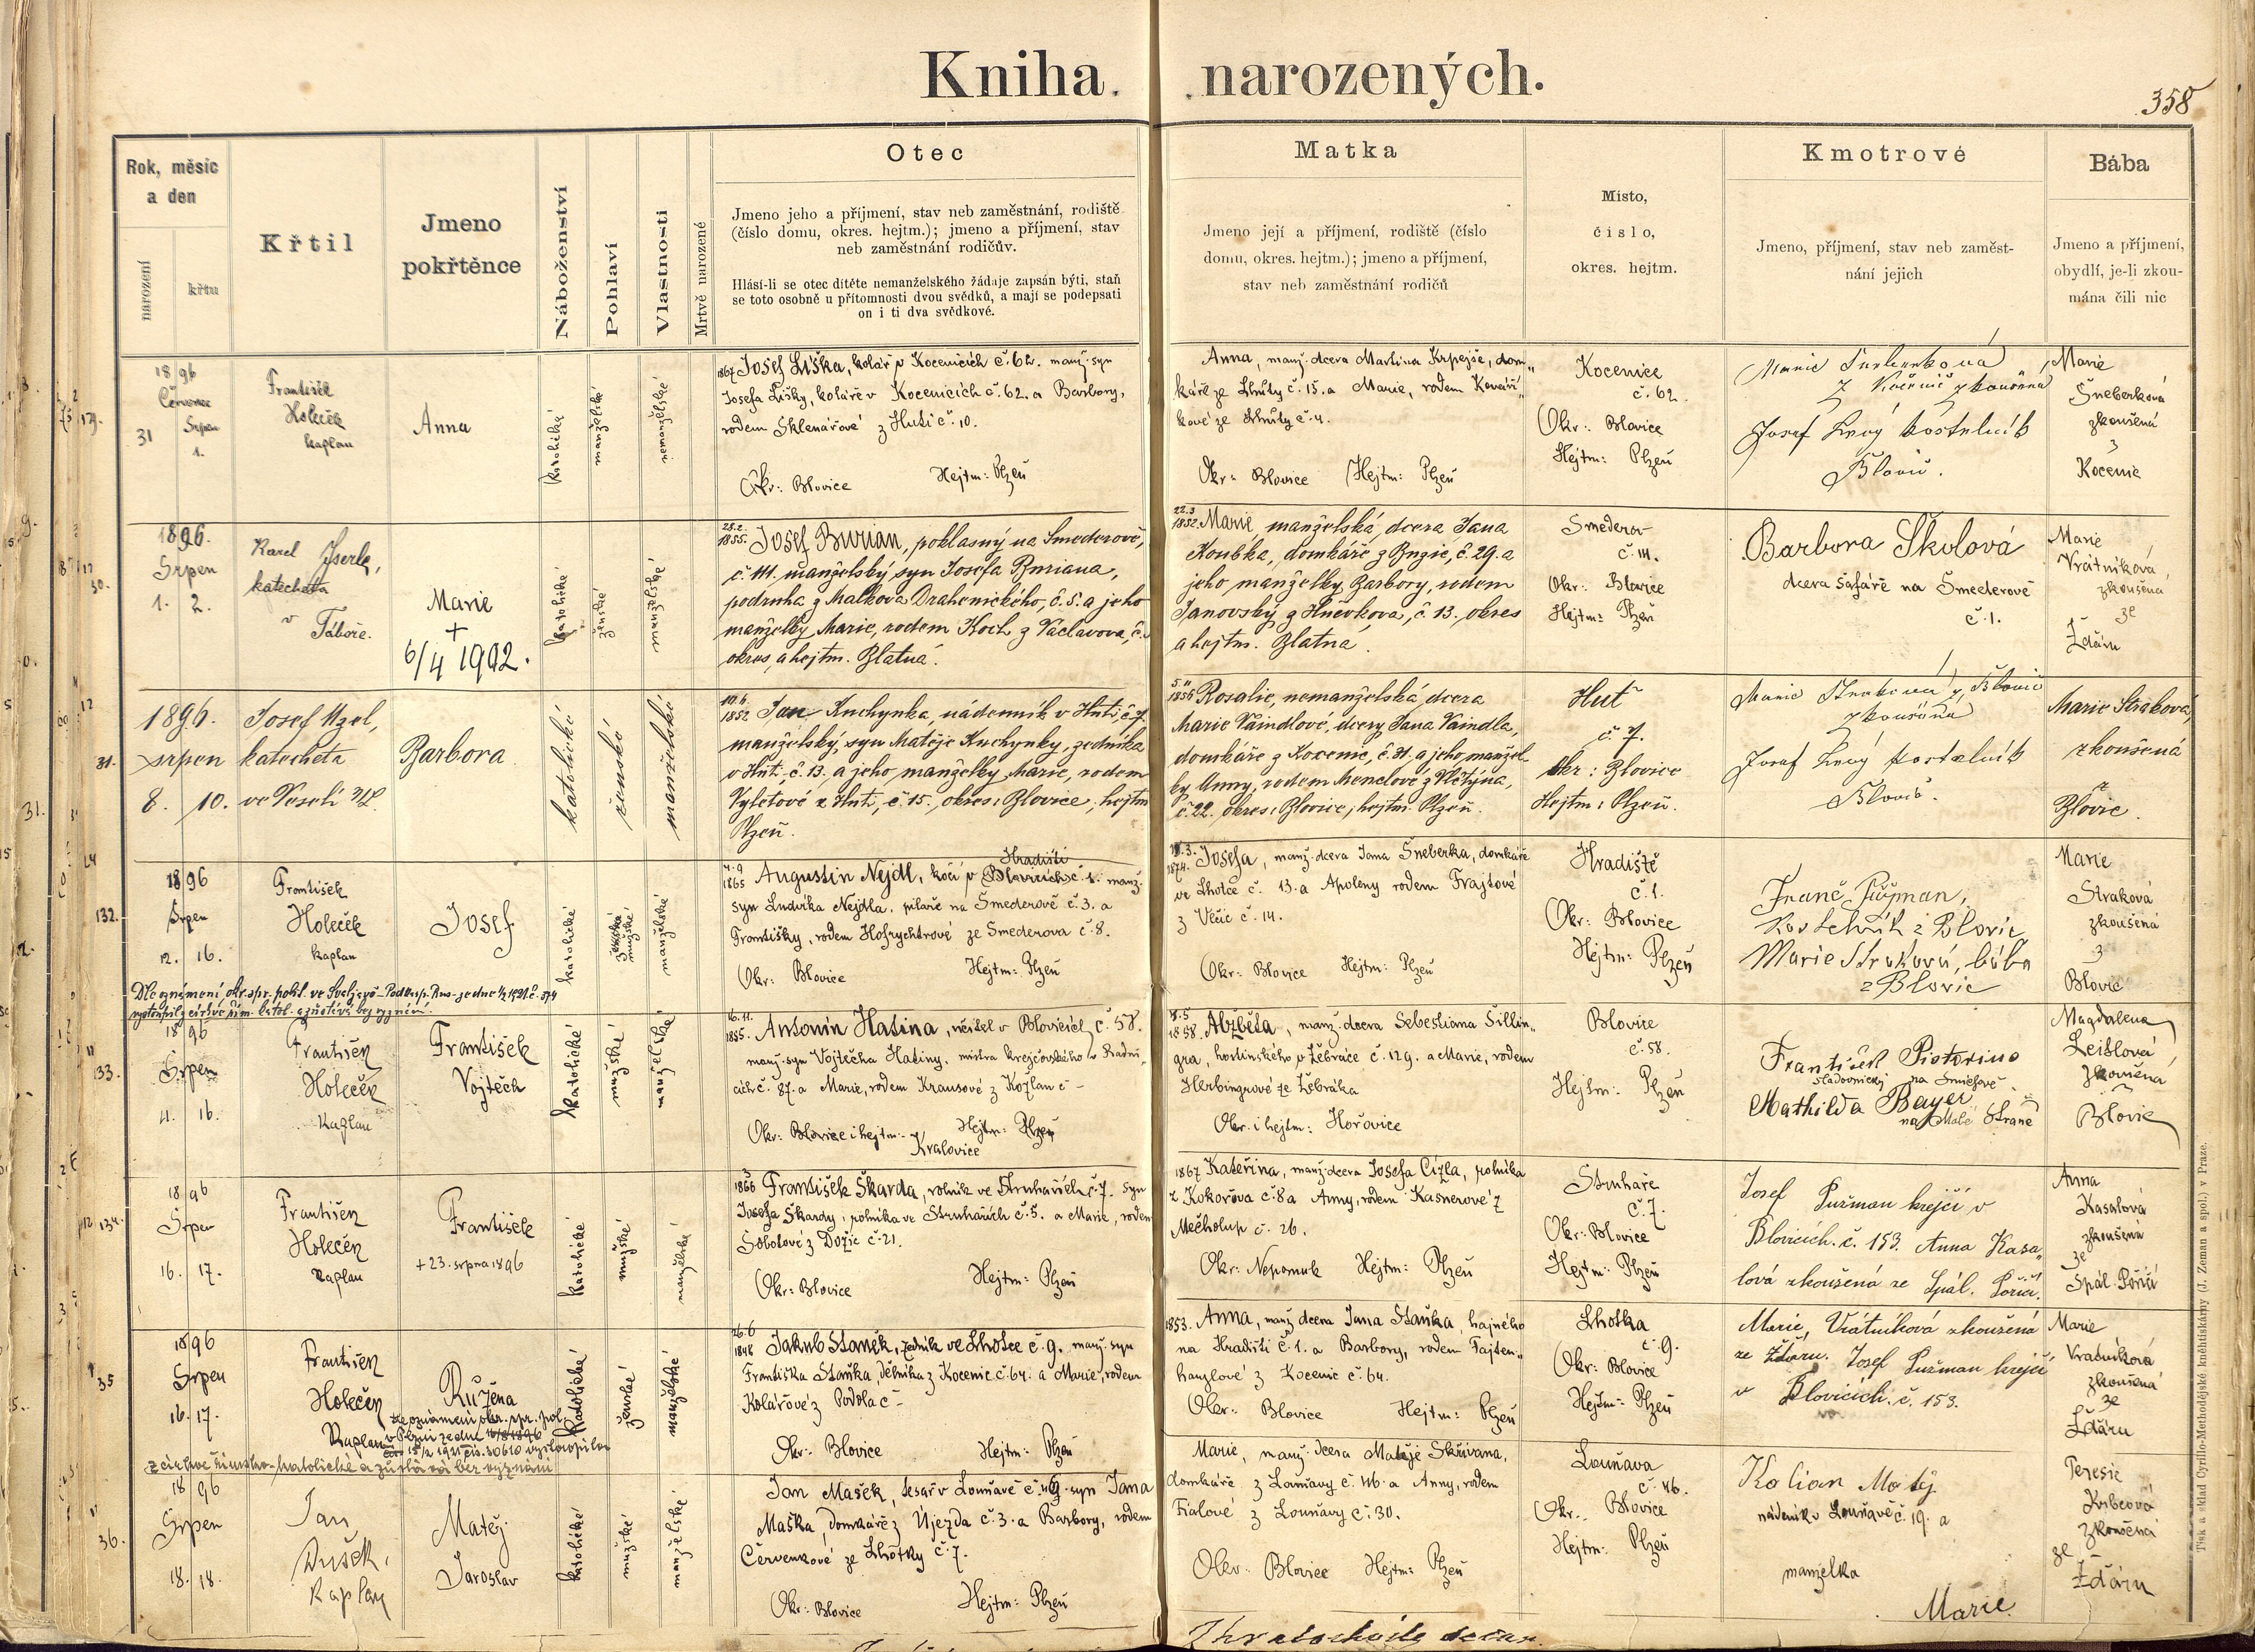 Kniha narozených.
358
Rok, měsíc
a den
narození
křtu
Křtil
Jmeno
pokřtěnce
Náboženství
Pohlaví
Vlastnosti
Mrtvě narozené
Otec
Jmeno jeho a příjmení, stav neb zaměstnání, rodiště
(číslo domu, okres. hejtm.); jmeno a příjmení, stav
neb zaměstnání rodičův.
Hlásí-li se otec dítěte nemanželského žádaje zapsán býti, staň
se toto osobně u přítomnosti dvou svědků, a mají se podepsati
on i ti dva svědkové.
Matka
Jmeno její a příjmení, rodiště (číslo
domu, okres. hejtm.); jmeno a příjmení,
stav neb zaměstnání rodičů
Místo,
číslo,
okres. hejtm.
Kmotrové
Jmeno, příjmení, stav neb zaměst-
nání jejich
Bába
Jmeno a příjmení,
obydlí, je-li zkou-
mána čili nic
1896
Červenec
Srpen
31
1.
František
Holeček
kaplan
Anna
katolické
manželské
nemanželské
1867 Josef Liška, kolář v Kocenicích č. 62. manž. syn
Josefa Lišky, koláře v Kocenicích č. 62. a Barbory,
rodem Sklenářové z Huti č. 10.
Okr: Blovice Hejtm: Plzeň
Anna, manž. dcera Martina Krpejše, dom„
káře ze Lhůty č. 15. a Marie, rodem Kovaří„
kové ze Lhůty č. 4.
Okr: Blovice Hejtm: Plzeň
Kocenice
č. 62.
Okr: Blovice
Hejtm: Plzeň
Marie Šneberková
z Kocenic zkoušená
Josef Levý kostelník
Blovic.
Marie
Šneberková
zkoušená
z
Kocenic
30.
1896.
Srpen
1. 2.
Karel Jserle,
katecheta
v Táboře.
Marie
+
6/4 1942.
katolické
ženské
manželské
28.2.
1855. Josef Burian, poklasný na Smederově,
č. 14. manželský syn Josefa Buriana,
podruha z Malkova Drahenického, č. 5. a jeho
manželky Marie, rodem Koch z Václavova, č.
okres a hejtm. Blatná.
22.3
1852. Marie, manželská dcera Jana
Koubka, domkáře z Buzic, č. 29. a
jeho manželky Barbory, rodem
Janovský z Hněvkova, č. 13. okres
a hejtm. Blatná.
Smederov
č. 14.
Okr: Blovice
Hejtm: Plzeň
Barbora Školová
dcera šafáře na Smederově
č. 1.
Marie
Vrátníková
zkoušená
ze
Ždáru
31.
1896.
srpen
8. 10.
Josef Uzel,
katecheta
ve Veselí n/L.
Barbora
katolické
ženské
manželské
1852 Jan Kuchynka, nádenník v Huti, č. 7.
manželský syn Matěje Kuchynky, zedníka
v Huti č. 13. a jeho manželky Marie, rodem
Vyletové z Huti, č. 15., okres: Blovice, hejtm
Plzeň.
1856 Rosalie, nemanželská dcera
Marie Vaindlové, dcery Jana Vaindla,
domkáře z Kocenic, č. 31. a jeho manžel
ky Anny, rodem Menclové z Vlčtýna,
č. 22. okres: Blovice, hejtm. Plzeň.
Huť
č. 7.
Okr: Blovice
Hejtm: Plzeň.
Marie Straková z Blovic
zkoušená
Josef Levý kostelník
Blovic.
Marie Straková,
zkoušená
z
Blovic.
132.
1896
Srpen
12. 16.
František
Holeček
kaplan
Josef
katolické
ženské
mužské
manželské
4.9
1865 Augustin Nejdl, kočí v Blovicích č. 1. manž.
Hradišti
syn Ludvíka Nejdla, pilaře na Smederově č. 3. a
Františky, rodem Hofrychtrové ze Smederova č. 8.
Okr: Blovice Hejtm: Plzeň
1874. Josefa, manž. dcera Jana Šneberka, domkáře
ve Lhotce č. 13. a Apoleny rodem Frajtové
z Vlčic č. 14.
Okr: Blovice Hejtm: Plzeň
Hradiště
č. 1.
Okr: Blovice
Hejtm: Plzeň
Franc Pužman,
kostelník z Blovic
Marie Straková, bába
z Blovic
Marie
Straková
zkoušená
z
Blovic
Dle oznámení okr. spr. polit. ve
vystoupil z církve řím. katol. a zůstává bez vyznání.
133.
1896
Srpen
4. 16.
František
Holeček
Kaplan
František
Vojtěch
katolické
mužské
manželské
16.11.
1855. Antonín Hatina, učitel v Blovicích č. 58.
manž. syn Vojtěcha Hatiny, mistra krejčovského v Hradiš„
cích č. 87. a Marie, rodem Krausové z Kožlan č -
Okr: Blovice i hejtm: Hejtm: Plzeň
Kralovice
1858. Alžběta, manž. dcera Sebestiana Šillin„
gra, hostinského v Žebráce č. 129. a Marie, rodem
Herbingrové ze Žebráka
Okr. i hejtm: Hořovice
Blovice
č. 58.
Hejtm: Plzeň
František Pistorius
sladovnický na Smíchově.
Mathilda Bayer
na Malé Straně
Magdalena
Leislová
zkoušená
Blovic
134.
1896
Srpen
16. 17.
František
Holeček
Kaplan
František
+ 23. srpna 1896
katolické
mužské
manželské
1866 František Škarda, rolník ve Struhařích č. 7. syn
Josefa Škardy, rolníka ve Struhařích č. 5. a Marie, rodem
Sobotové z Dožic č. 21.
Okr: Blovice Hejtm: Plzeň
1867 Kateřina, manž. dcera Josefa Cizla, rolníka
z Kokořova č. 8 a Anny, rodem Kasnerové z
Měcholup č. 26.
Okr: Nepomuk Hejtm: Plzeň
Struhaře
č. 7.
Okr: Blovice
Hejtm: Plzeň
Josef Pužman krejčí v
Blovicích. č. 153. Anna Kasa„
lová zkoušená ze Spál. Poříčí.
Anna
Kasalová
zkoušená
ze
Spál. Poříčí
35
1896
Srpen
16. 17.
František
Holeček
Kaplan
Růžena
dle oznámení okr. spr. pol.
v Plzni ze dne 16/8 1896
15/2 1921 čís. 30610 vystoupila
z církve římsko-katolické a zůstává bez vyznání
katolické
ženské
manželské
26.6
1848 Jakub Staněk, zedník ve Lhotce č. 9. manž. syn
Františka Staňka, dělníka z Kocenic č. 64. a Marie, rodem
Kolářové z Podolí č -
Okr: Blovice Hejtm: Plzeň
1853. Anna, manž. dcera Jana Staňka, hajného
na Hradišti č. 1. a Barbory, rodem Fajten„
hanzlové z Kocenic č. 64.
Okr: Blovice Hejtm: Plzeň
Lhotka
č. 9.
Okr: Blovice
Hejtm: Plzeň
Marie, Vrátníková zkoušená
ze Ždáru. Josef Pužman krejčí
v Blovicích. č. 153.
Marie
Vrátníková
zkoušená
ze
Ždáru
36.
1896
Srpen
18. 18.
Jan
Dušek,
kaplan
Matěj
Jaroslav
katolické
mužské
manželské
Jan Mašek, tesař v Louňavě č. 46. syn Jana
Maška, domkáře z Újezda č. 3. a Barbory, rodem
Červenkové ze Lhotky č. 7.
Okr: Blovice Hejtm: Plzeň
Marie, manž. dcera Matěje Skřivana,
domkáře z Louňavy č. 46. a Anny, rodem
Fialové z Louňavy č. 30.
Okr: Blovice Hejtm: Plzeň
Louňava
č. 46.
Okr.. Blovice
Hejtm: Plzeň
Kolian Matěj
nádeník v Louňavě č. 19. a
manželka
Marie.
Teresie
Krbcová
zkoušená
ze
Ždáru
Tisk a sklad Cyrillo-Methodějské knihtiskárny (J. Zeman a spol.) v Praze.